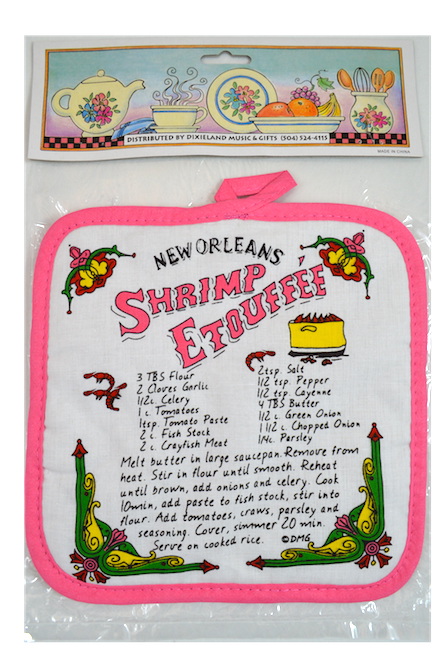 DISTRIBUTED BY DIXIELAND MUSIC & GIFTS (504) 524-4115
MADE IN CHINA
NEW ORLEANS
SHRIMP
ETOUFFÉE
3 TBS Flour
2 Cloves Garlic
1/2 c. Celery
1 c. Tomatoes
1 tsp. Tomato Paste
2 c. Fish Stock
2 c. Crayfish Meat
2 tsp. Salt
1/2 tsp. Pepper
1/2 tsp. Cayenne
4 TBS Butter
1/2 c. Green Onion
1 1/2 c. Chopped Onion
1/4 c. Parsley
Melt butter in large saucepan. Remove from
heat. Stir in flour until smooth. Reheat
until brown, add onions and celery. Cook
10min, add paste to fish stock, stir into
flour. Add tomatoes, craws, parsley and
seasoning. Cover, simmer 20 min.
Serve on cooked rice. ©DMG